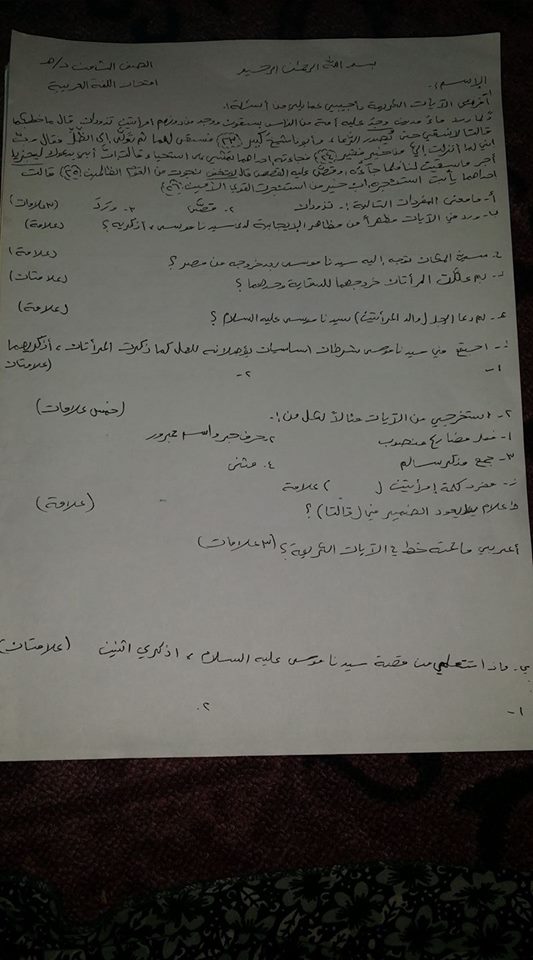 بسم الله الرحمن الرحيم
الصف الثامن د/هـ
الاسم :.
امتحان اللغة العربية
أقرئي الآيات القرآنية وأجيبي عما يلي من أسئلة :.
لما ورد ماء مدين وجد عليه أمة من الناس يسقون ووجد من دونهم امرأتين تذودان قال ما خطبكما
قالتا لا نسقي حتى يُصدر الرعاء وأبونا شيخ كبير (٢٣) فسقى لهما ثم تولى إلى الظلّ فقال ربّ
اني لما أنزلت إليّ من خير فقير (٢٤) فجاءته إحداهما تمشي على استحياء قالت إن أبي يدعوك ليجزيك
أجر ما سقيت لنا فلما جاءه وقصّ عليه القصص قال لا تخف نجوت من القوم الظالمين (٢٥) قالت
احداهما يا أبت استئجره إن خير من استئجرت القوي الأمين (٢٦)
أ- ما معنى المفردات التالية :. ١- تذودان ٢- قصّ ٣- ورد (٣ علامات)
ب- ورد في الآيات مظهراً من مظاهر الإيجابية لدى سيدنا موسى ، أذكريه ؟ (علامة)
ج- مسمى المكان توجه إليه سيدنا موسى بعد خروجه من مصر ؟ (علامة)
د- بم علّلت المرأتان خروجهما للسقاية وحدهما ؟ (علامتان)
هـ- لم دعا الرجل (والد المرأتين) سيدنا موسى عليه السلام ؟ (علامة)
و- اجتمع في سيدنا موسى شرطان أساسيان يؤهلانه للعمل كما ذكرت المرأتان ، أذكريهما (علامتان)
١- ٢-
٢- استخرجي من الآيات مثالاً لكل من :. (خمس علامات)
١- فعل مضارع منصوب ٢. حرف جر واسم مجرور
٣- جمع مذكر سالم ٤. مثنى
ز- مفرد كلمة امرأتين ( ) علامة
ط علام يعود الضمير في (قالتا) ؟ (علامة)
أعربي ما تحته خط في الآيات القرآنية ؟ (٣ علامات)
ي- ماذا استعلمي من قصة سيدنا موسى عليه السلام ، اذكري اثنين (علامتان)
١- ٢.